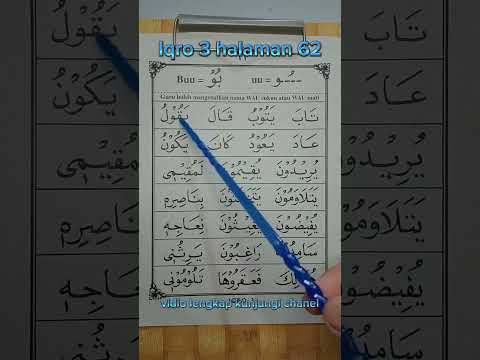 Iqro 3 halaman 62
Buu = بُوْ uu = ـُوْ
Guru boleh mengenalkan nama WAU sukun atau WAU mati
تَابَ يَتُوْبُ قَالَ يَقُوْلُ
عَادَ يَعُوْدُ كَانَ يَكُوْنُ
يُرِيْدُوْنَ يُقِيْمُوْنَ لَمُقِيْمِى
يَتَلَاوَمُوْنَ بِنَاصِرِهِ
يُفِيْضُوْنَ نِعَاجِهِ
رَاغِبُوْنَ يَرِثُنِى
فَعَقَرُوْهَا تَلُوْمُوْنِى
vidio lengkap kunjungi chanel